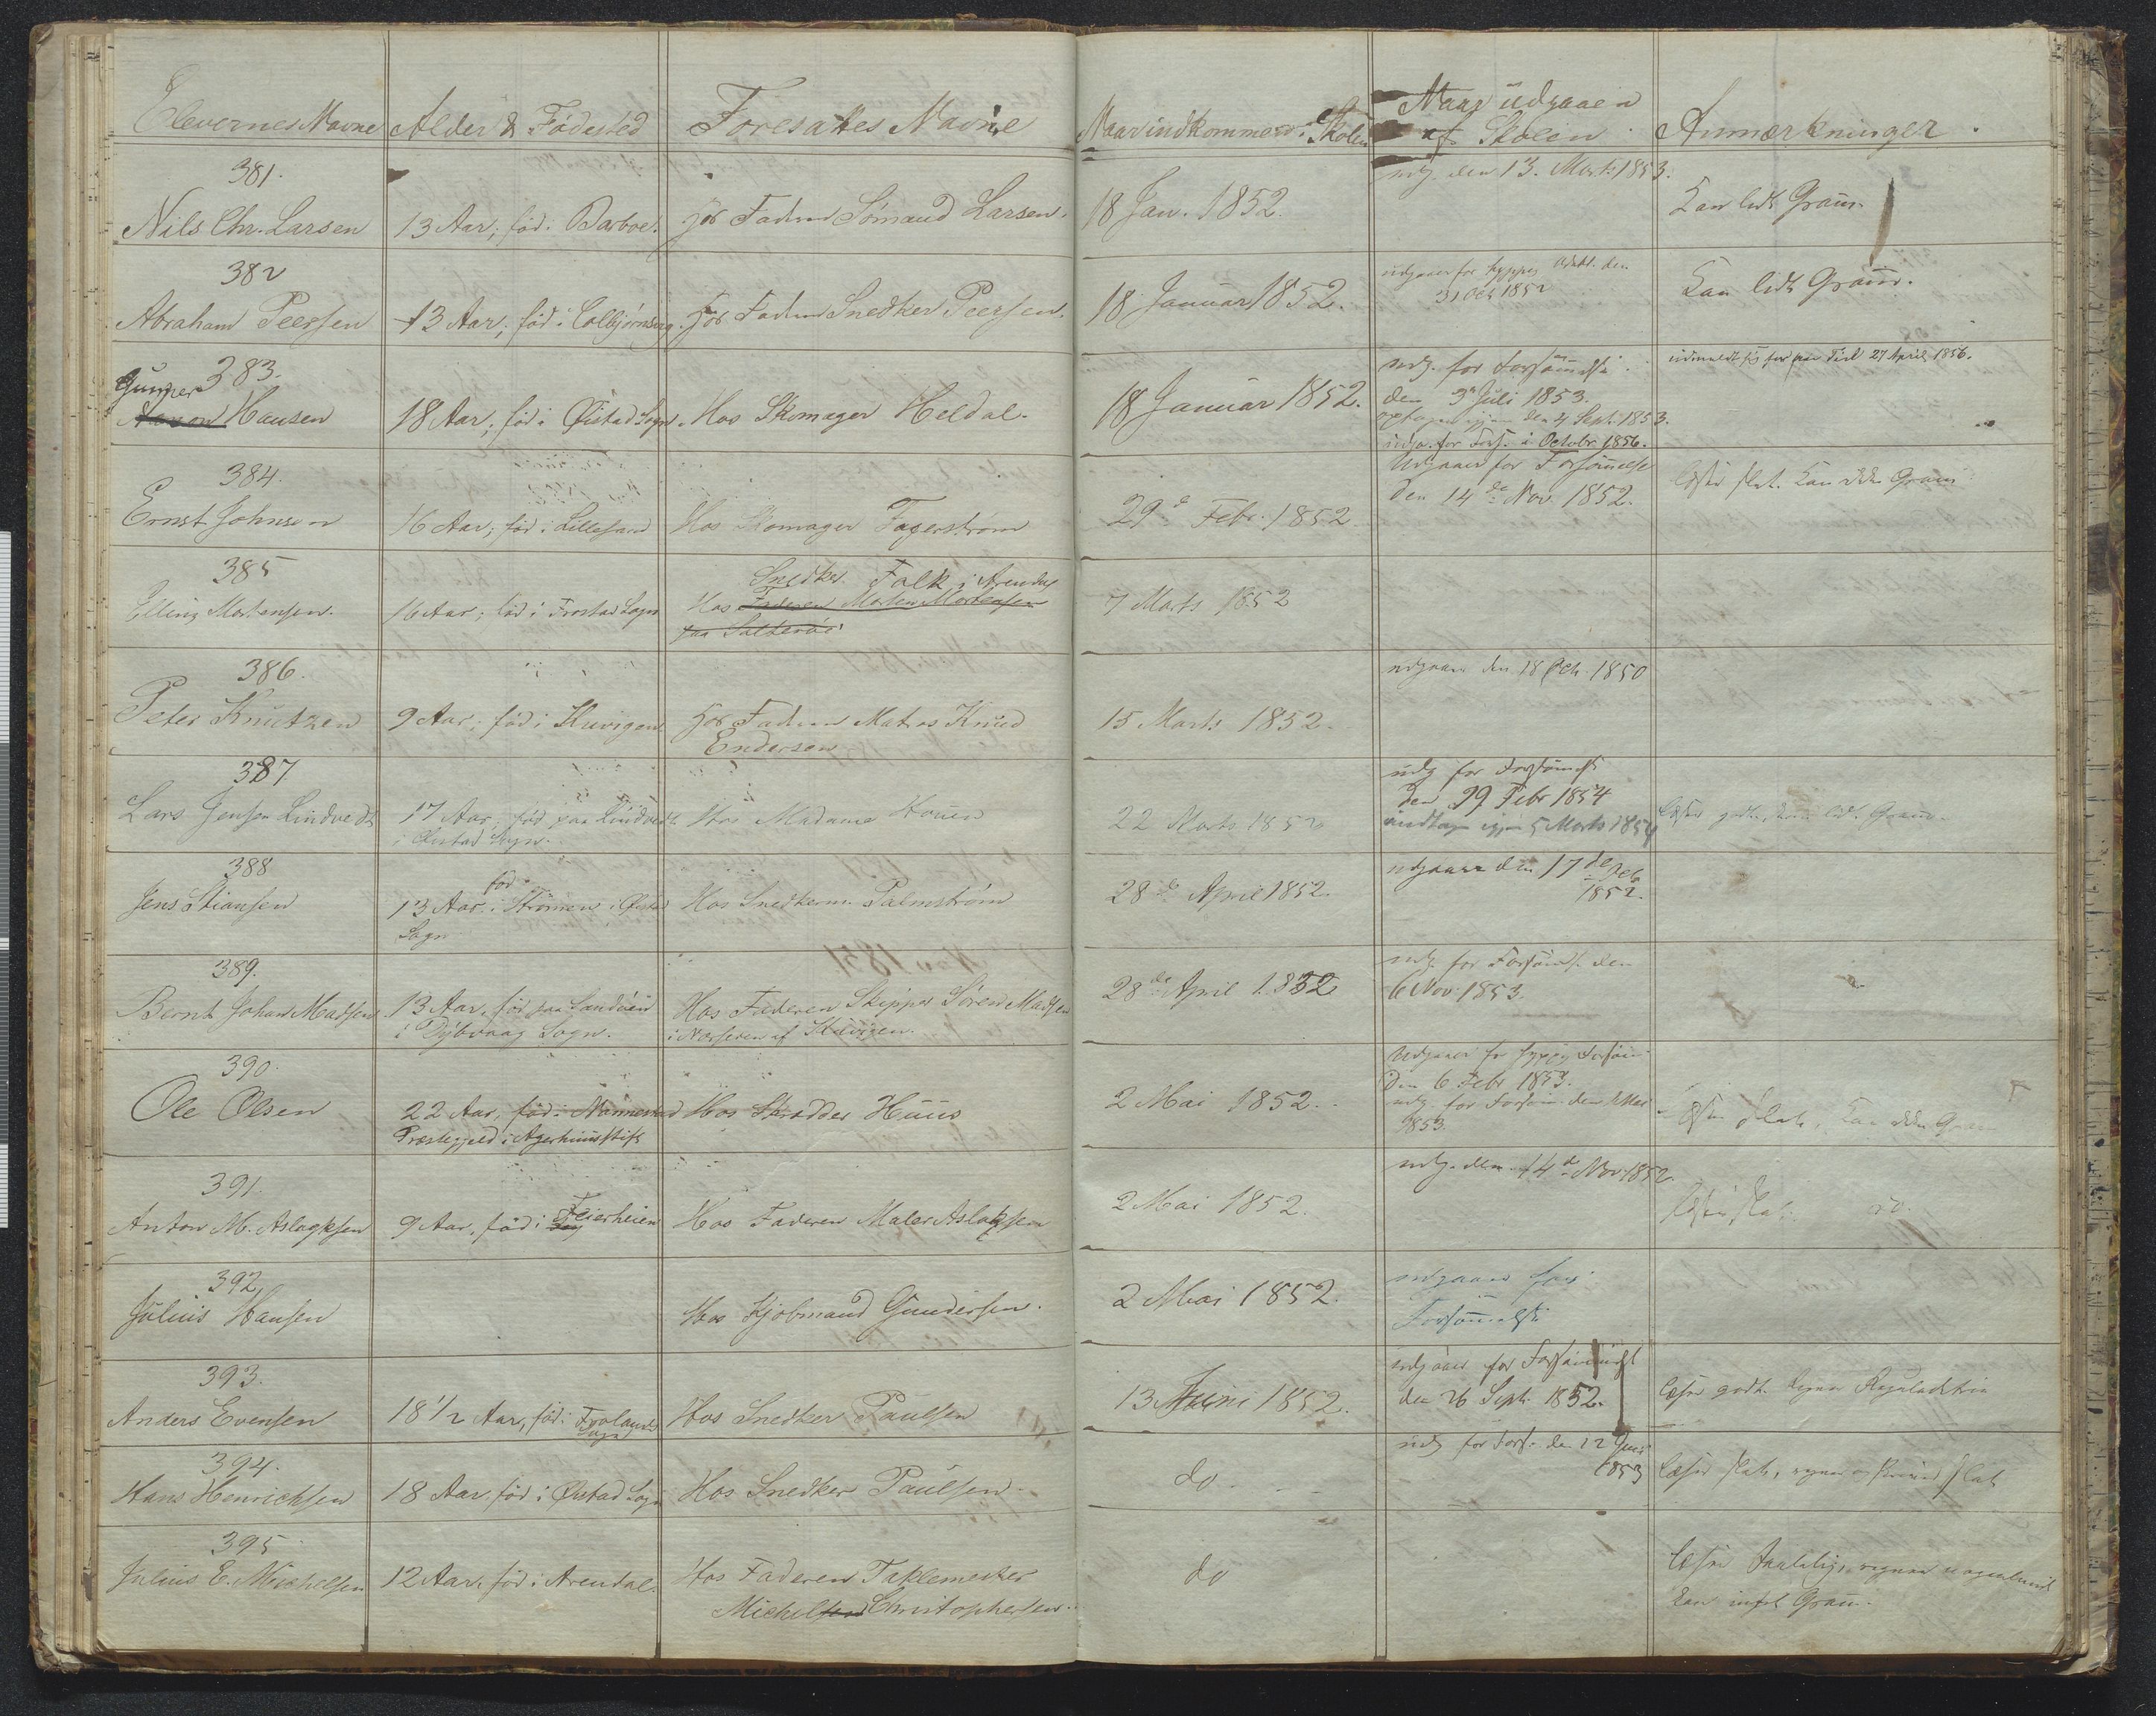 Elevernes Navne Alder & Fødested Foresattes Navne Naar indkommen i Skolen Naar udgaaen af Skolen Anmærkninger.
381.
Nils Chr. Larsen 13 Aar, fød i Barboe. Hos Faderen Sömand Larsen. 18 Jan. 1852. udg. den 13. Marts 1853. Kan lidt Gram.
382
Abraham Peersen 13 Aar, fød i Colbjørnsvig. Hos Faderen Snedker Peersen. 18 Januar 1852. udgaaer for hyppig den
31 Oct 1852 Kan lidt Gram.
383.
Gunner
Hansen 18 Aar, fød i Østad Sogn. Hos Skomager Heldal. 18 Januar 1852. udg. for Forsømmelse
den 3 Juli 1853.
optagen igjen den 4 Sept. 1853.
udga. for Fors. i Octobr 1856. udmeldt sig for paa Tid 27 April 1856.
384.
Ernst Johnsen 16 Aar, fød i Lillesand Hos Skomager Fagerstrøm 29de Febr. 1852 Udgaaer for Forsømmelse
den 14de Nov. 1852. læser slet. kan ikke Gram
385
Elling Mortensen. 16 Aar, fød i Frostad Sogn Snedker Falk i Arendal
Hos Faderen Morten Mortensen
paa Salterød. 7 Marts 1852
386.
Peter Knutzen 9 Aar, fød i Kuvigen Hos Faderen Matros Knud
Endersen 15 Marts 1852. udgaaer den 18 Oct. 1850
387
Lars Jensen Lindvedt 17 Aar, fød paa Lindvedt
i Østad Sogn. Hos Madame Houen 22 Marts 1852 udg for Forsømmelse
den 19 Febr 1854
indtagen igjen 5 Marts 1854 læser godt, kan lidt Gram.
388
Jens Stiansen 13 Aar, fød i Strømen i Østad
Sogn Hos Snedkerm. Palmstrøm 28de April 1852. udgaaer den 17de Oct
1852.
389.
Bernt Johan Madsen 13 Aar, fød paa Sandøen
i Dybvaag Sogn. Hos Faderen Skipper Søren Madsen
i Nærheden af Kuvigen. 28de April 1852 udg. for Forsømmelse den
6 Nov. 1853.
390.
Ole Olsen 22 Aar, fød i Nannestad
Præstegjeld i Agerhuus Stift Hos Skrædder Huus 2 Mai 1852. Udgaaer for hyppig Forsøm
den 6 Febr 1853.
udg. for Forsøm. den Mai
1853. læser slet, kan ikke Gram
391.
Anton M. Aslagksen 9 Aar, fød i Feierheien Hos Faderen Maler Aslaksen 2 Mai 1852. udg. den 14de Nov. 1852. læser slet. do.
392,
Julius Hansen Hos Kjøbmand Gundersen. 2 Mai 1852. udgaaer for
Forsømmelse
393.
Anders Evensen 18 1/2 Aar, fød i Frolands
Sogn Hos Snedker Paulsen 13 Juni 1852. udgaaer for Forsømmelse
den 26 Sept. 1852. læser godt. regner Reguladetrie
394.
Hans Henrichsen 18 Aar fød i Østad Sogn Hos Snedker Paulsen. do udg for Fors. den 12 Juni
1853 læser slet, regner og skriver slet
395
Julius E. Michelsen 12 Aar, fød i Arendal. Hos Faderen Taklemester
Michelsen Christophersen. do læser taalelig, regner nogenlunde
kan intet Gram.